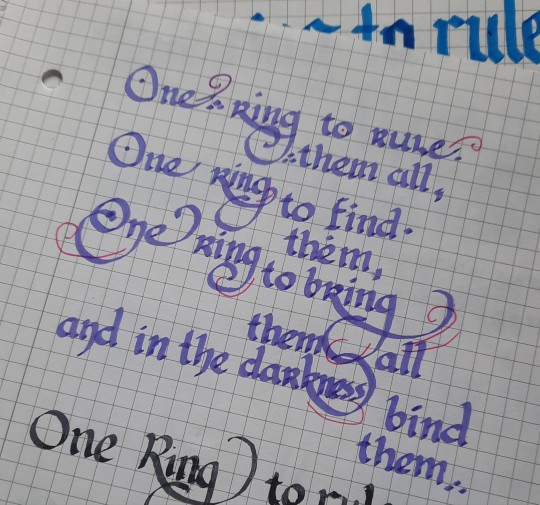 to rule
One ring to rule
them all,
One ring to find
them,
One ring to bring
them all
and in the darkness bind
them...
One Ring to rule